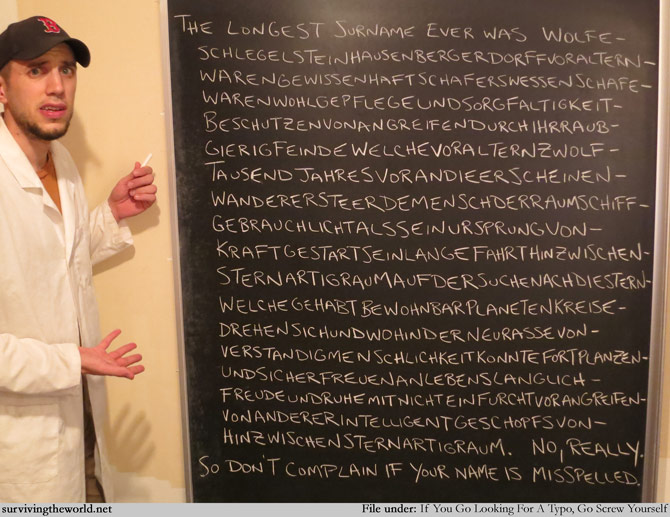 THE LONGEST SURNAME EVER WAS WOLFE-
SCHLEGELSTEINHAUSENBERGERDORFFVORALTERN-
WARENGEWISSENHAFTSCHAFERSWESSENSCHAFE-
WARENWOHLGEPFLEGEUNDSORGFALTIGKEIT-
BESCHUTZENVONANGREIFENDURCHIHRRAUB-
GIERIGFEINDEWELCHEVORALTERNZWOLF-
TAUSENDJAHRESVORANDIEERSCHEINEN-
WANDERERSTEERDEMENSCHDERRAUMSCHIFF-
GEBRAUCHLICHTALSSEINURSPRUNGVON-
KRAFTGESTARTSEINLANGEFAHRTHINZWISCHEN-
STERNARTIGRAUMAUFDERSUCHENACHDIESTERN-
WELCHEGEHABTBEWOHNBARPLANETENKREISE-
DREHENSICHUNDWOHINDERNEURASSEVON-
VERSTANDIGMENSCHLICHKEITKONNTEFORTPLANZEN-
UNDSICHERFREUENANLEBENSLANGLICH-
FREUDEUNDRUHEMITNICHTEINFURCHTVORANGREIFEN-
VONANDERERINTELLIGENTGESCHOPFSVON-
HINZWISCHENSTERNARTIGRAUM. NO, REALLY.
SO DON'T COMPLAIN IF YOUR NAME IS MISSPELLED.
survivingtheworld.net
File under: If You Go Looking For A Typo, Go Screw Yourself